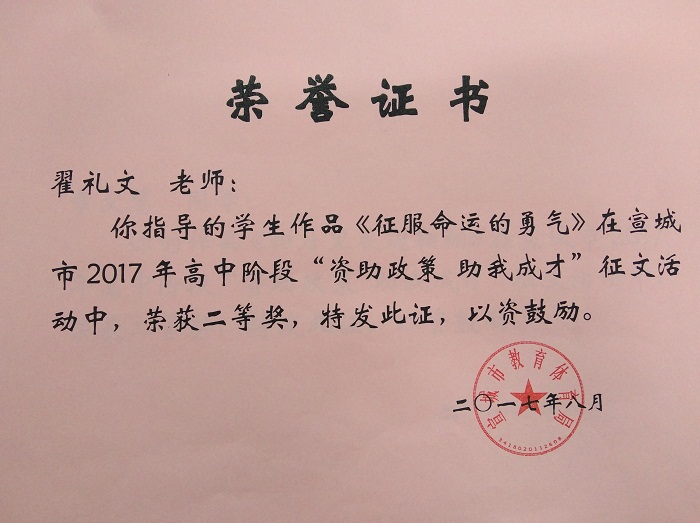 荣誉证书
翟礼文 老师：
你指导的学生作品《征服命运的勇气》在宣城
市2017年高中阶段“资助政策 助我成才”征文活
动中，荣获二等奖，特发此证，以资鼓励。
宣城市教育体育局
二〇一七年八月